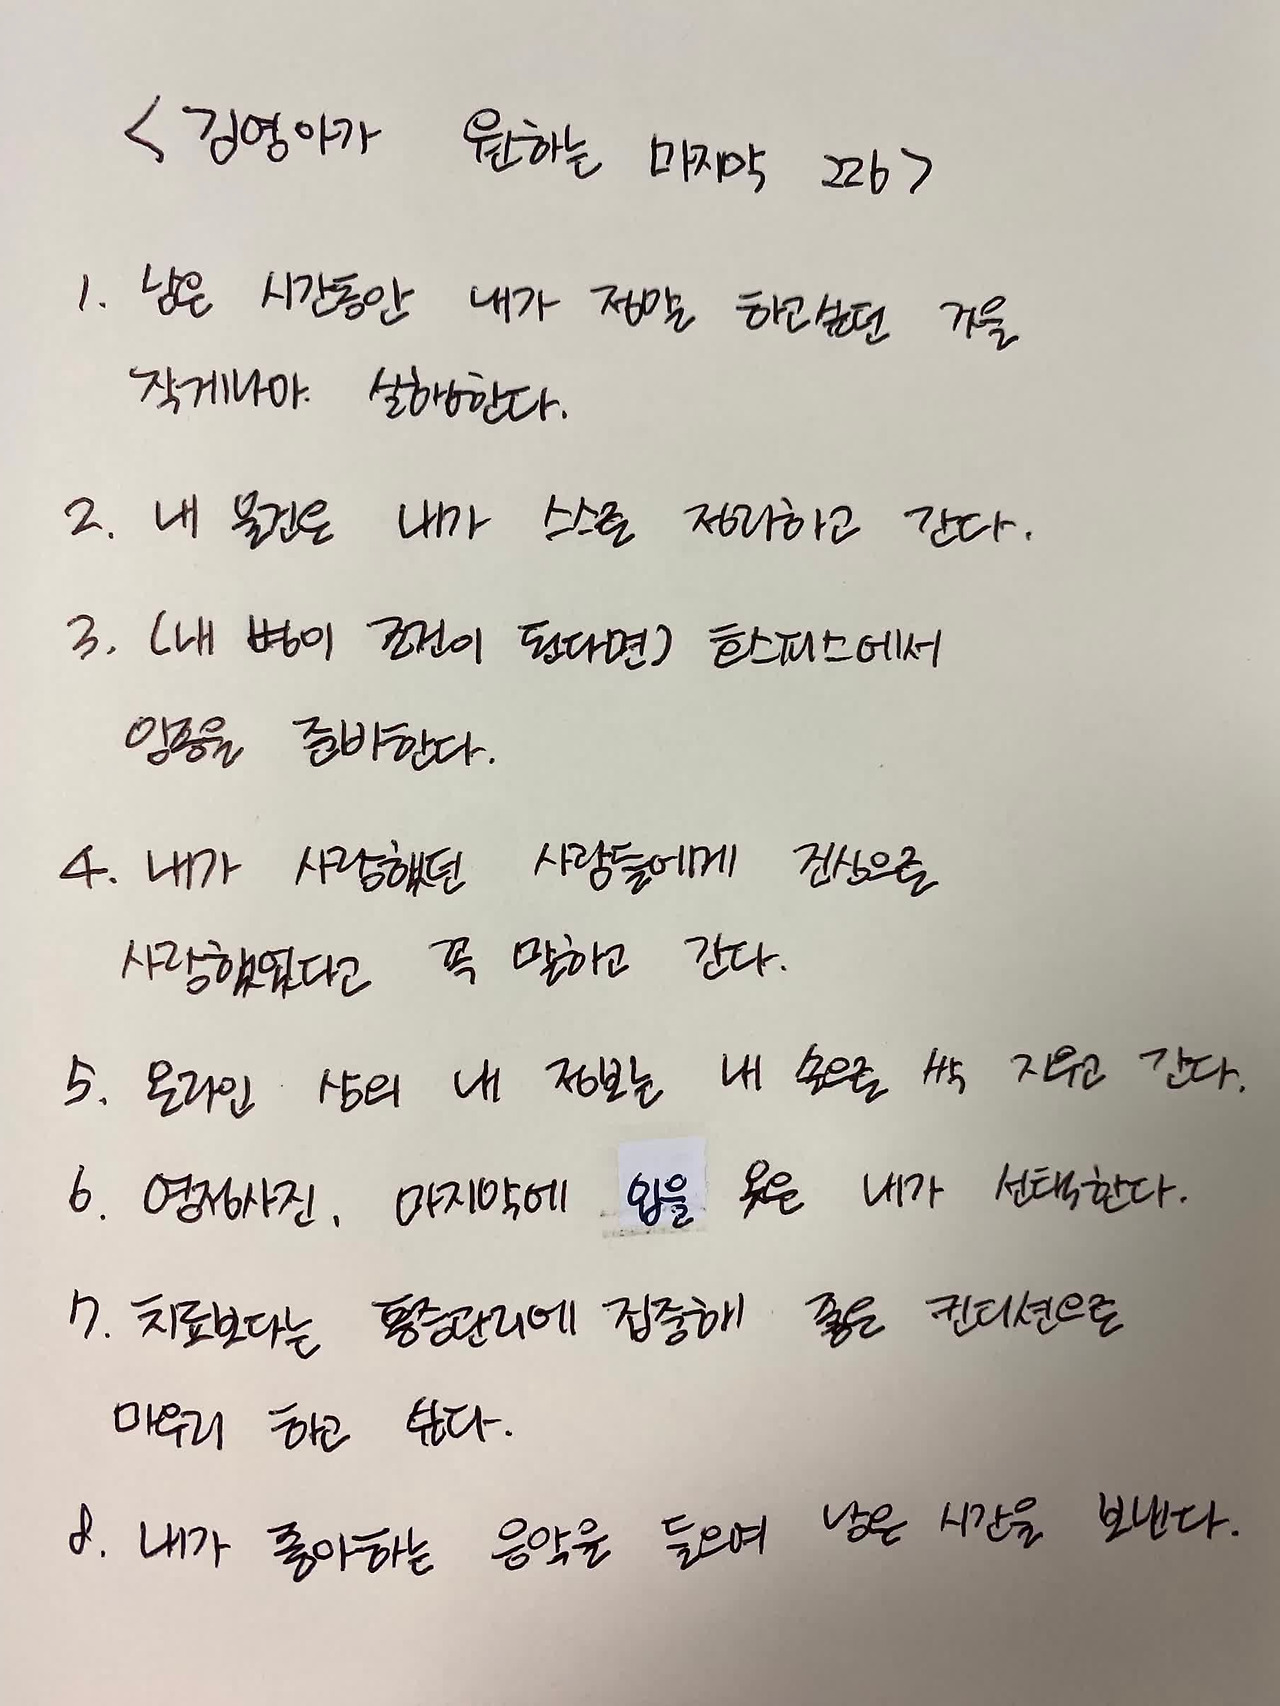 <김영아가 원하는 마지막 226>
1. 남은 시간동안 내가 정말 하고싶던 것을
작게나마 실행한다.
2. 내 물건은 내가 스스로 정리하고 간다.
3. (내 병이 조건이 된다면) 호스피스에서
임종을 준비한다.
4. 내가 사랑했던 사람들에게 진심으로
사랑했었다고 꼭 말하고 간다.
5. 온라인 상의 내 정보는 내 손으로 싹 지우고 간다.
6. 영정사진, 마지막에 입을 옷은 내가 선택한다.
7. 치료보다는 통증관리에 집중해 좋은 컨디션으로
마무리 하고 싶다.
8. 내가 좋아하는 음악을 들으며 남은 시간을 보낸다.